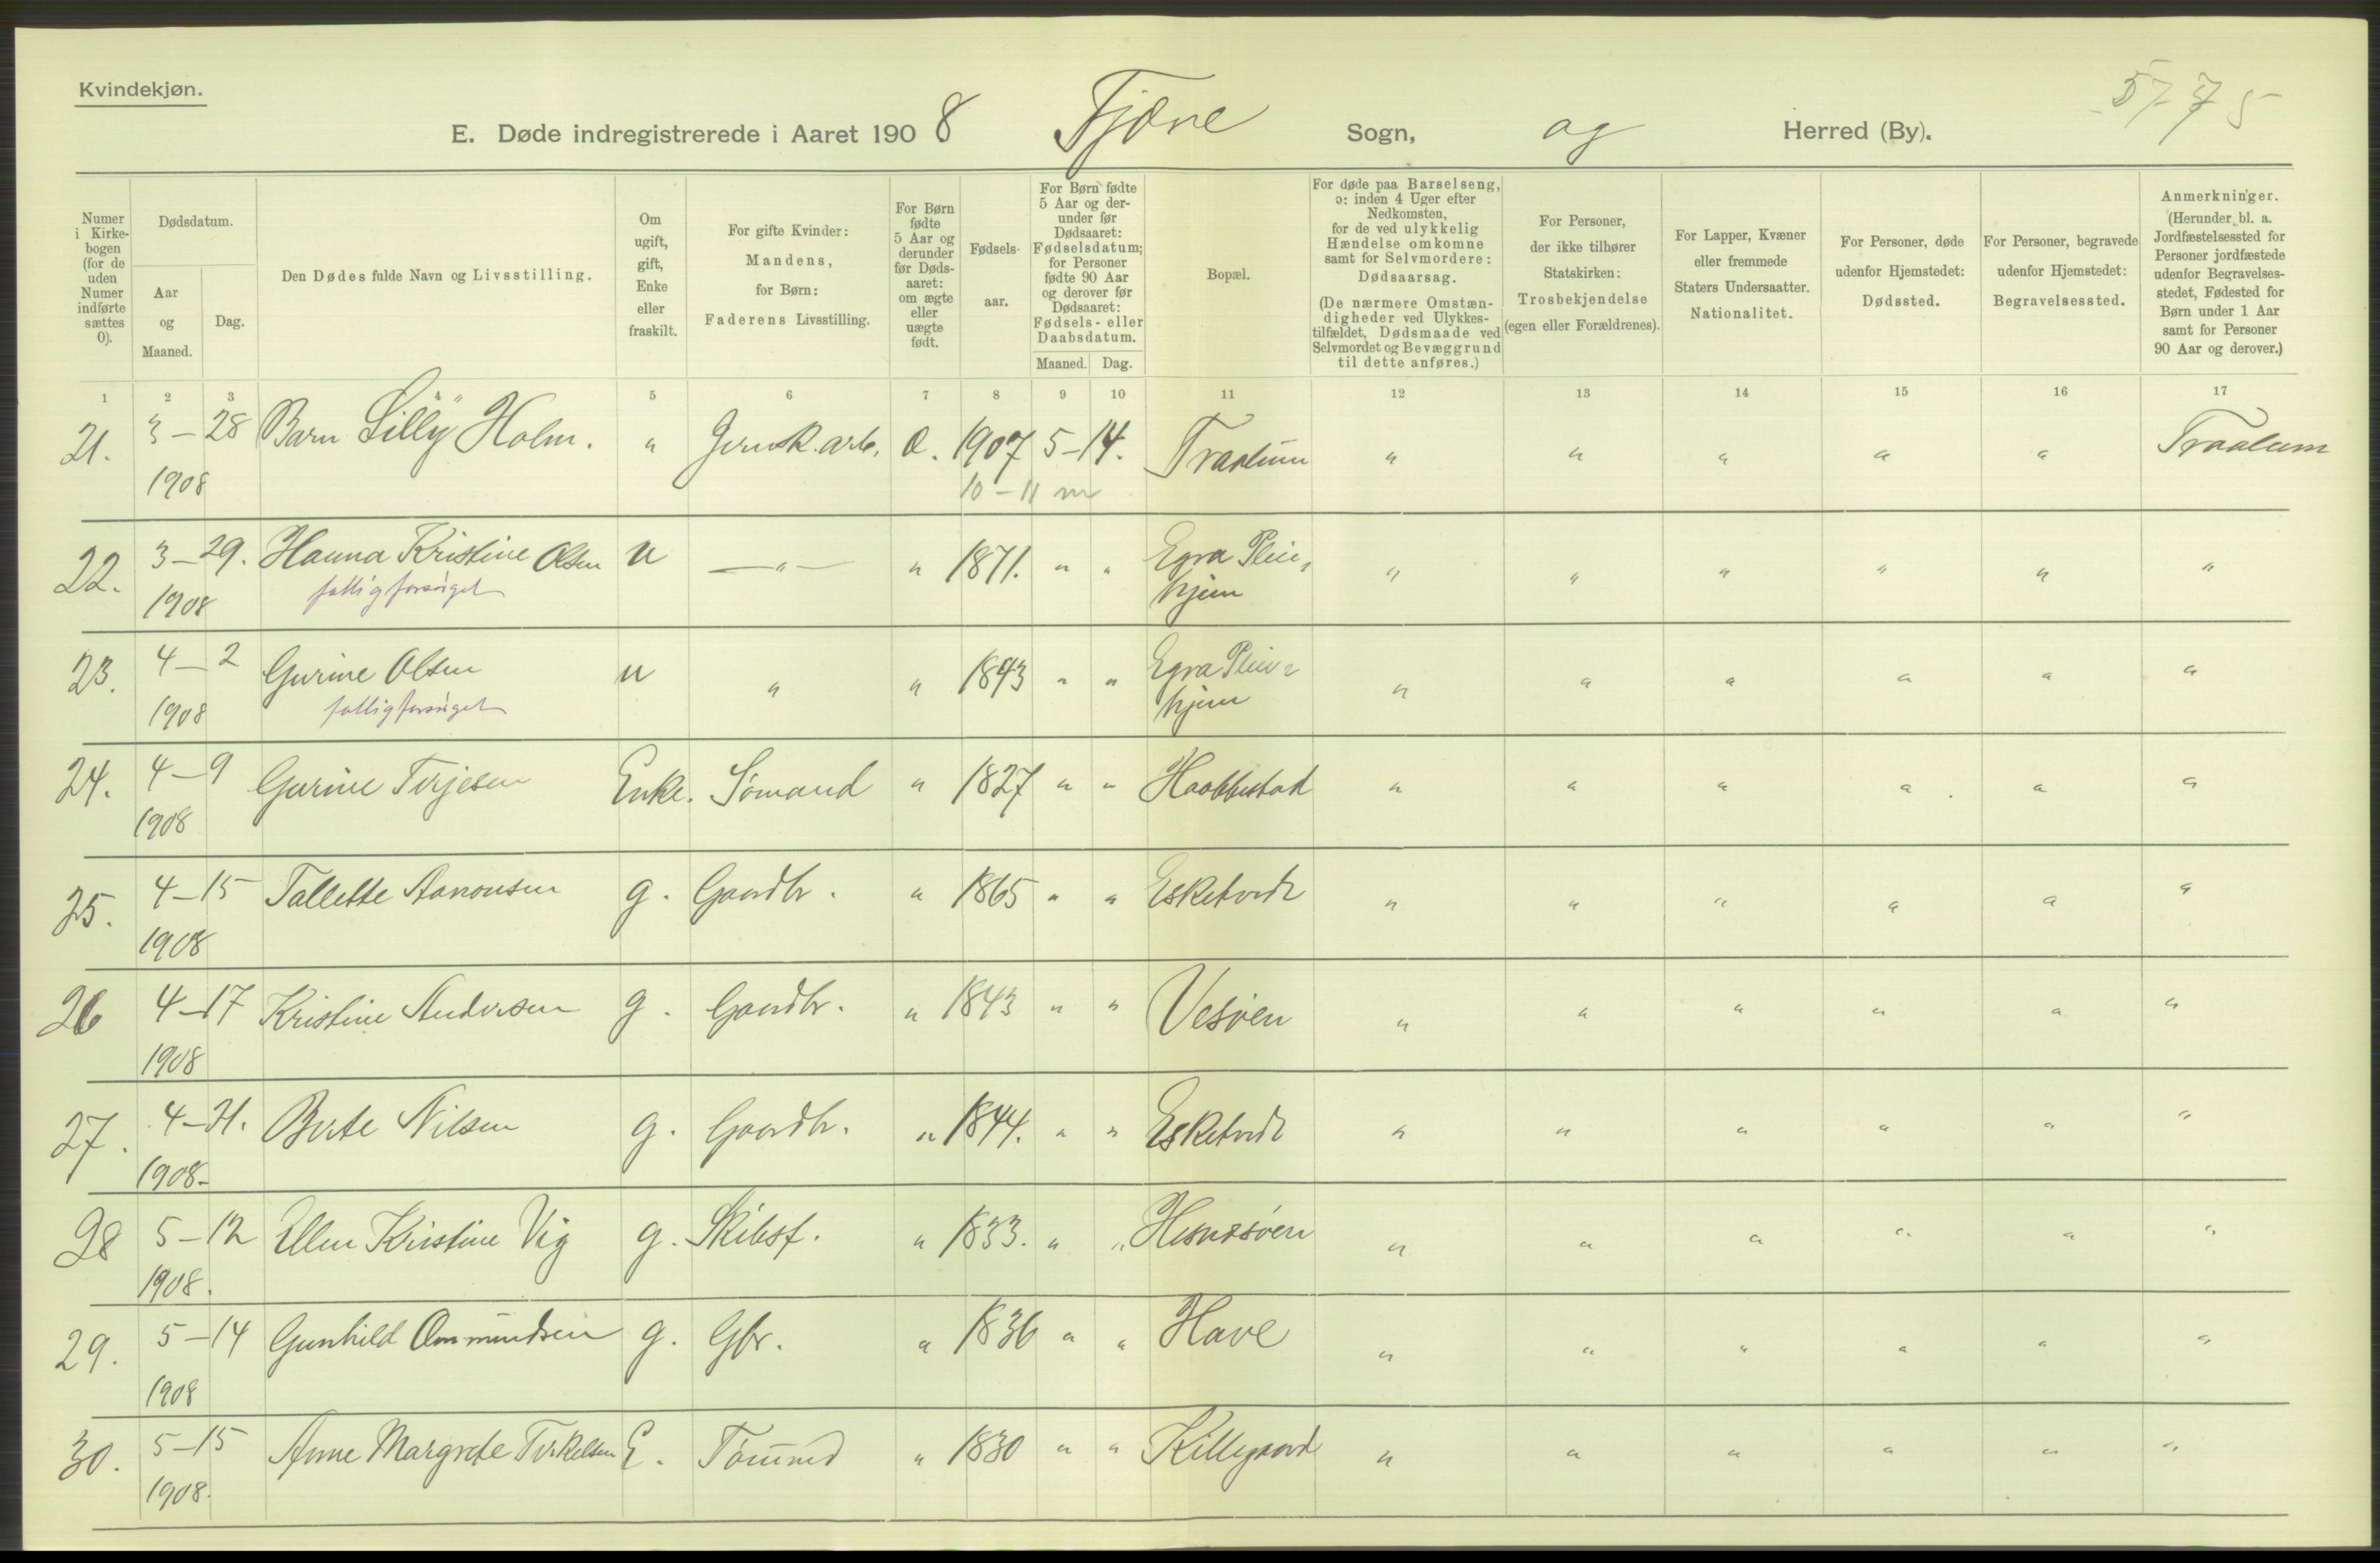 Kvindekjøn.
5775
E. Døde indregistrerede i Aaret 1908 Fjære Sogn, og Herred (By).
Numer i Kirke-bogen (for de uden Numer indførte sættes 0).
Dødsdatum.
Aar og Maaned.
Dag.
Den Dødes fulde Navn og Livsstilling.
Om ugift, gift, Enke eller fraskilt.
For gifte Kvinder: Mandens, for Børn: Faderens Livsstilling.
For Børn fødte 5 Aar og derunder før Døds-aaret: om ægte eller uægte født.
Fødsels-aar.
For Børn fødte 5 Aar og der-under før Dødsaaret: Fødselsdatum; for Personer fødte 90 Aar og derover før Dødsaaret: Fødsels- eller Daabsdatum.
Maaned. Dag.
Bopæl.
For døde paa Barselseng, ɔ: inden 4 Uger efter Nedkomsten, for de ved ulykkelig Hændelse omkomne samt for Selvmordere: Dødsaarsag.
(De nærmere Omstæn-digheder ved Ulykkes-tilfældet, Dødsmaade ved Selvmordet og Bevæggrund til dette anføres.)
For Personer, der ikke tilhører Statskirken: Trosbekjendelse (egen eller Forældrenes).
For Lapper, Kvæner eller fremmede Staters Undersaatter. Nationalitet.
For Personer, døde udenfor Hjemstedet: Dødssted.
For Personer, begravede udenfor Hjemstedet: Begravelsessted.
Anmerkninger.
(Herunder bl. a. Jordfæstelsessted for Personer jordfæstede udenfor Begravelses-stedet, Fødested for Børn under 1 Aar samt for Personer 90 Aar og derover.)
1 2 3 4 5 6 7 8 9 10 11 12 13 14 15 16 17
21. 3-28 Barn "Lilly" Holm. " Jernk.arb. 1907 5-14. Traalum " " " " " Traalum
1908 10-11 m
22. 3-29. Hanna Kristine Olsen u —"— " 1871. " " Egra Pleie, " " " " " "
1908 fattigforsørget hjem
23. 4-2 Gurine Olsen u " " 1843 " " Egra Pleie= " " " " " "
1908 fattigforsørget hjem
24. 4-9 Gurine Terjesen Enke. Sømand " 1827 " " Haabbestad " " " " " "
1908
25. 4-15 Tallette Aanonsen g. Gaardbr. " 1865 " " Esketvedt " " " " " "
1908
26 4-17 Kristine Andersen g. Gaardbr. " 1843 " " Vesøen " " " " " "
1908
27. 4-21. Berte Nilsen g. Gaardbr. " 1844. " " Esketvedt " " " " " "
1908-
28 5-12 Ellen Kristine Vig g. Skibsf. " 1833. " " Hesnesøen " " " " " "
1908.
29. 5-14 Gunhild Ommundsen g. Gbr. " 1836 " " Have " " " " " "
1908
30. 5-15 Anne Margrete Terkelsen E. Tømmd " 1830 " " Killegaard " " " " " "
1908.